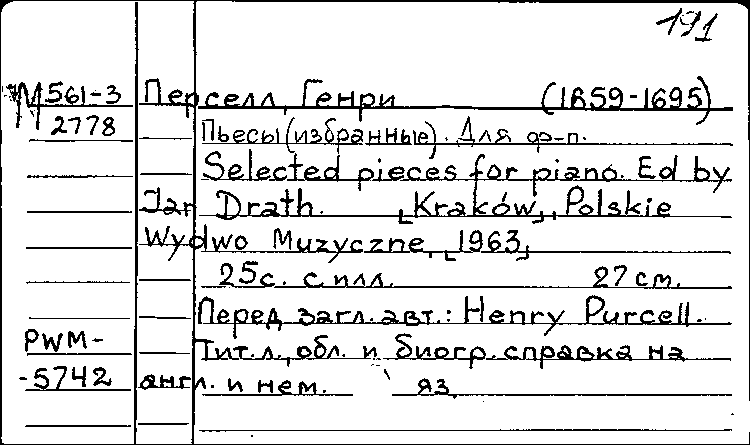 191
М561-3 Перселл, Генри (1659-1695)
2778 Пьесы (избранные). Для ф-п.
Selected pieces for piano. Ed by
Jan Drath. [Kraków], Polskie
Wydwo Muzyczne, [1963]
25с. с илл. 27 см.
Перед загл. авт.: Henry Purcell.
PWM- Тит. л., обл. и биогр. справка на
-5742 англ. и нем. яз.